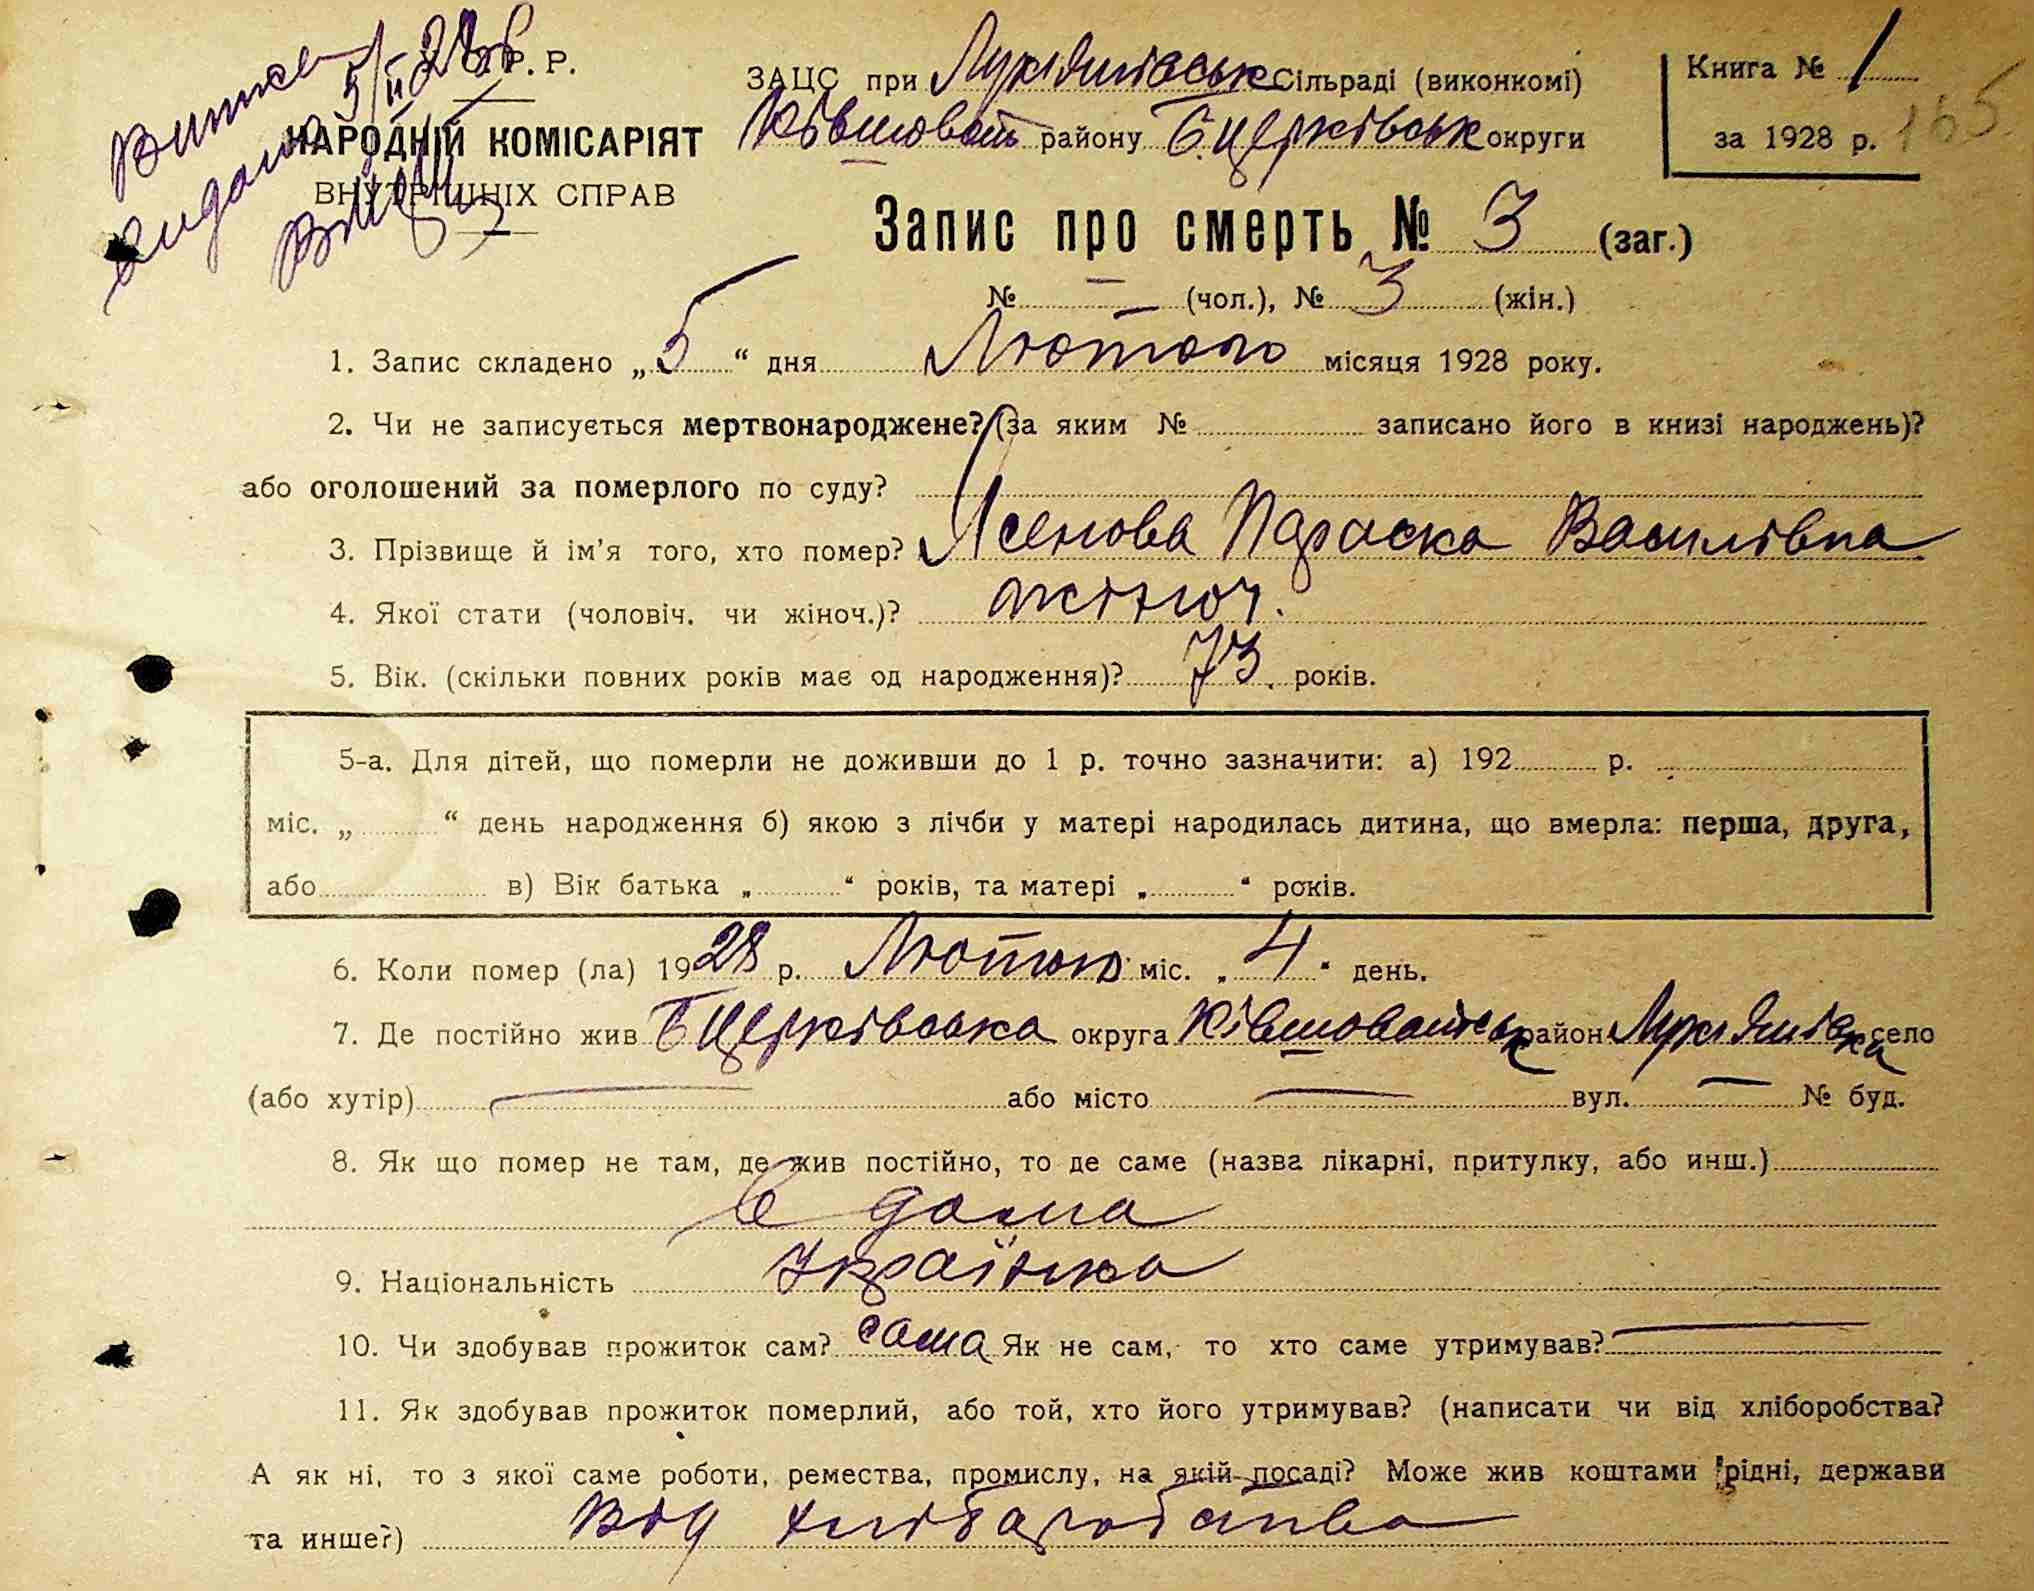 Витяг
видано 5/II 28 р
С. Р. Р.
НАРОДНІЙ КОМІСАРІЯТ
ВНУТРІШНІХ СПРАВ
ЗАЦС при Лукіянівськ Сільраді (виконкомі)
Ківшоват району Б.Церківськ округи
Книга № 1
за 1928 р.
165
Запис про смерть № 3 (заг.)
№ — (чол.), № 3 (жін.)
1. Запис складено „5“ дня Лютого місяця 1928 року.
2. Чи не записується мертвонароджене? (за яким № записано його в книзі народжень)?
або оголошений за померлого по суду?
3. Прізвище й ім'я того, хто помер? Ясенова Параска Василівна
4. Якої стати (чоловіч. чи жіноч.)? жіноч.
5. Вік. (скільки повних років має од народження)? 73 років.
5-а. Для дітей, що померли не доживши до 1 р. точно зазначити: а) 192 р.
міс. „ “ день народження б) якою з лічби у матері народилась дитина, що вмерла: перша, друга,
або в) Вік батька „ “ років, та матері „ “ років.
6. Коли помер (ла) 1928 р. Лютого міс. „4“ день.
7. Де постійно жив Б Церківська округа Ківшоватськ район Лукіянівка село
(або хутір) — або місто — вул. — № буд.
8. Як що помер не там, де жив постійно, то де саме (назва лікарні, притулку, або инш.)
в дома
9. Національність Українка
10. Чи здобував прожиток сам? сама Як не сам, то хто саме утримував? —
11. Як здобував прожиток померлий, або той, хто його утримував? (написати чи від хліборобства?
А як ні, то з якої саме роботи, ремества, промислу, на якій посаді? Може жив коштами рідні, держави
та инше?) Від хлібаробства